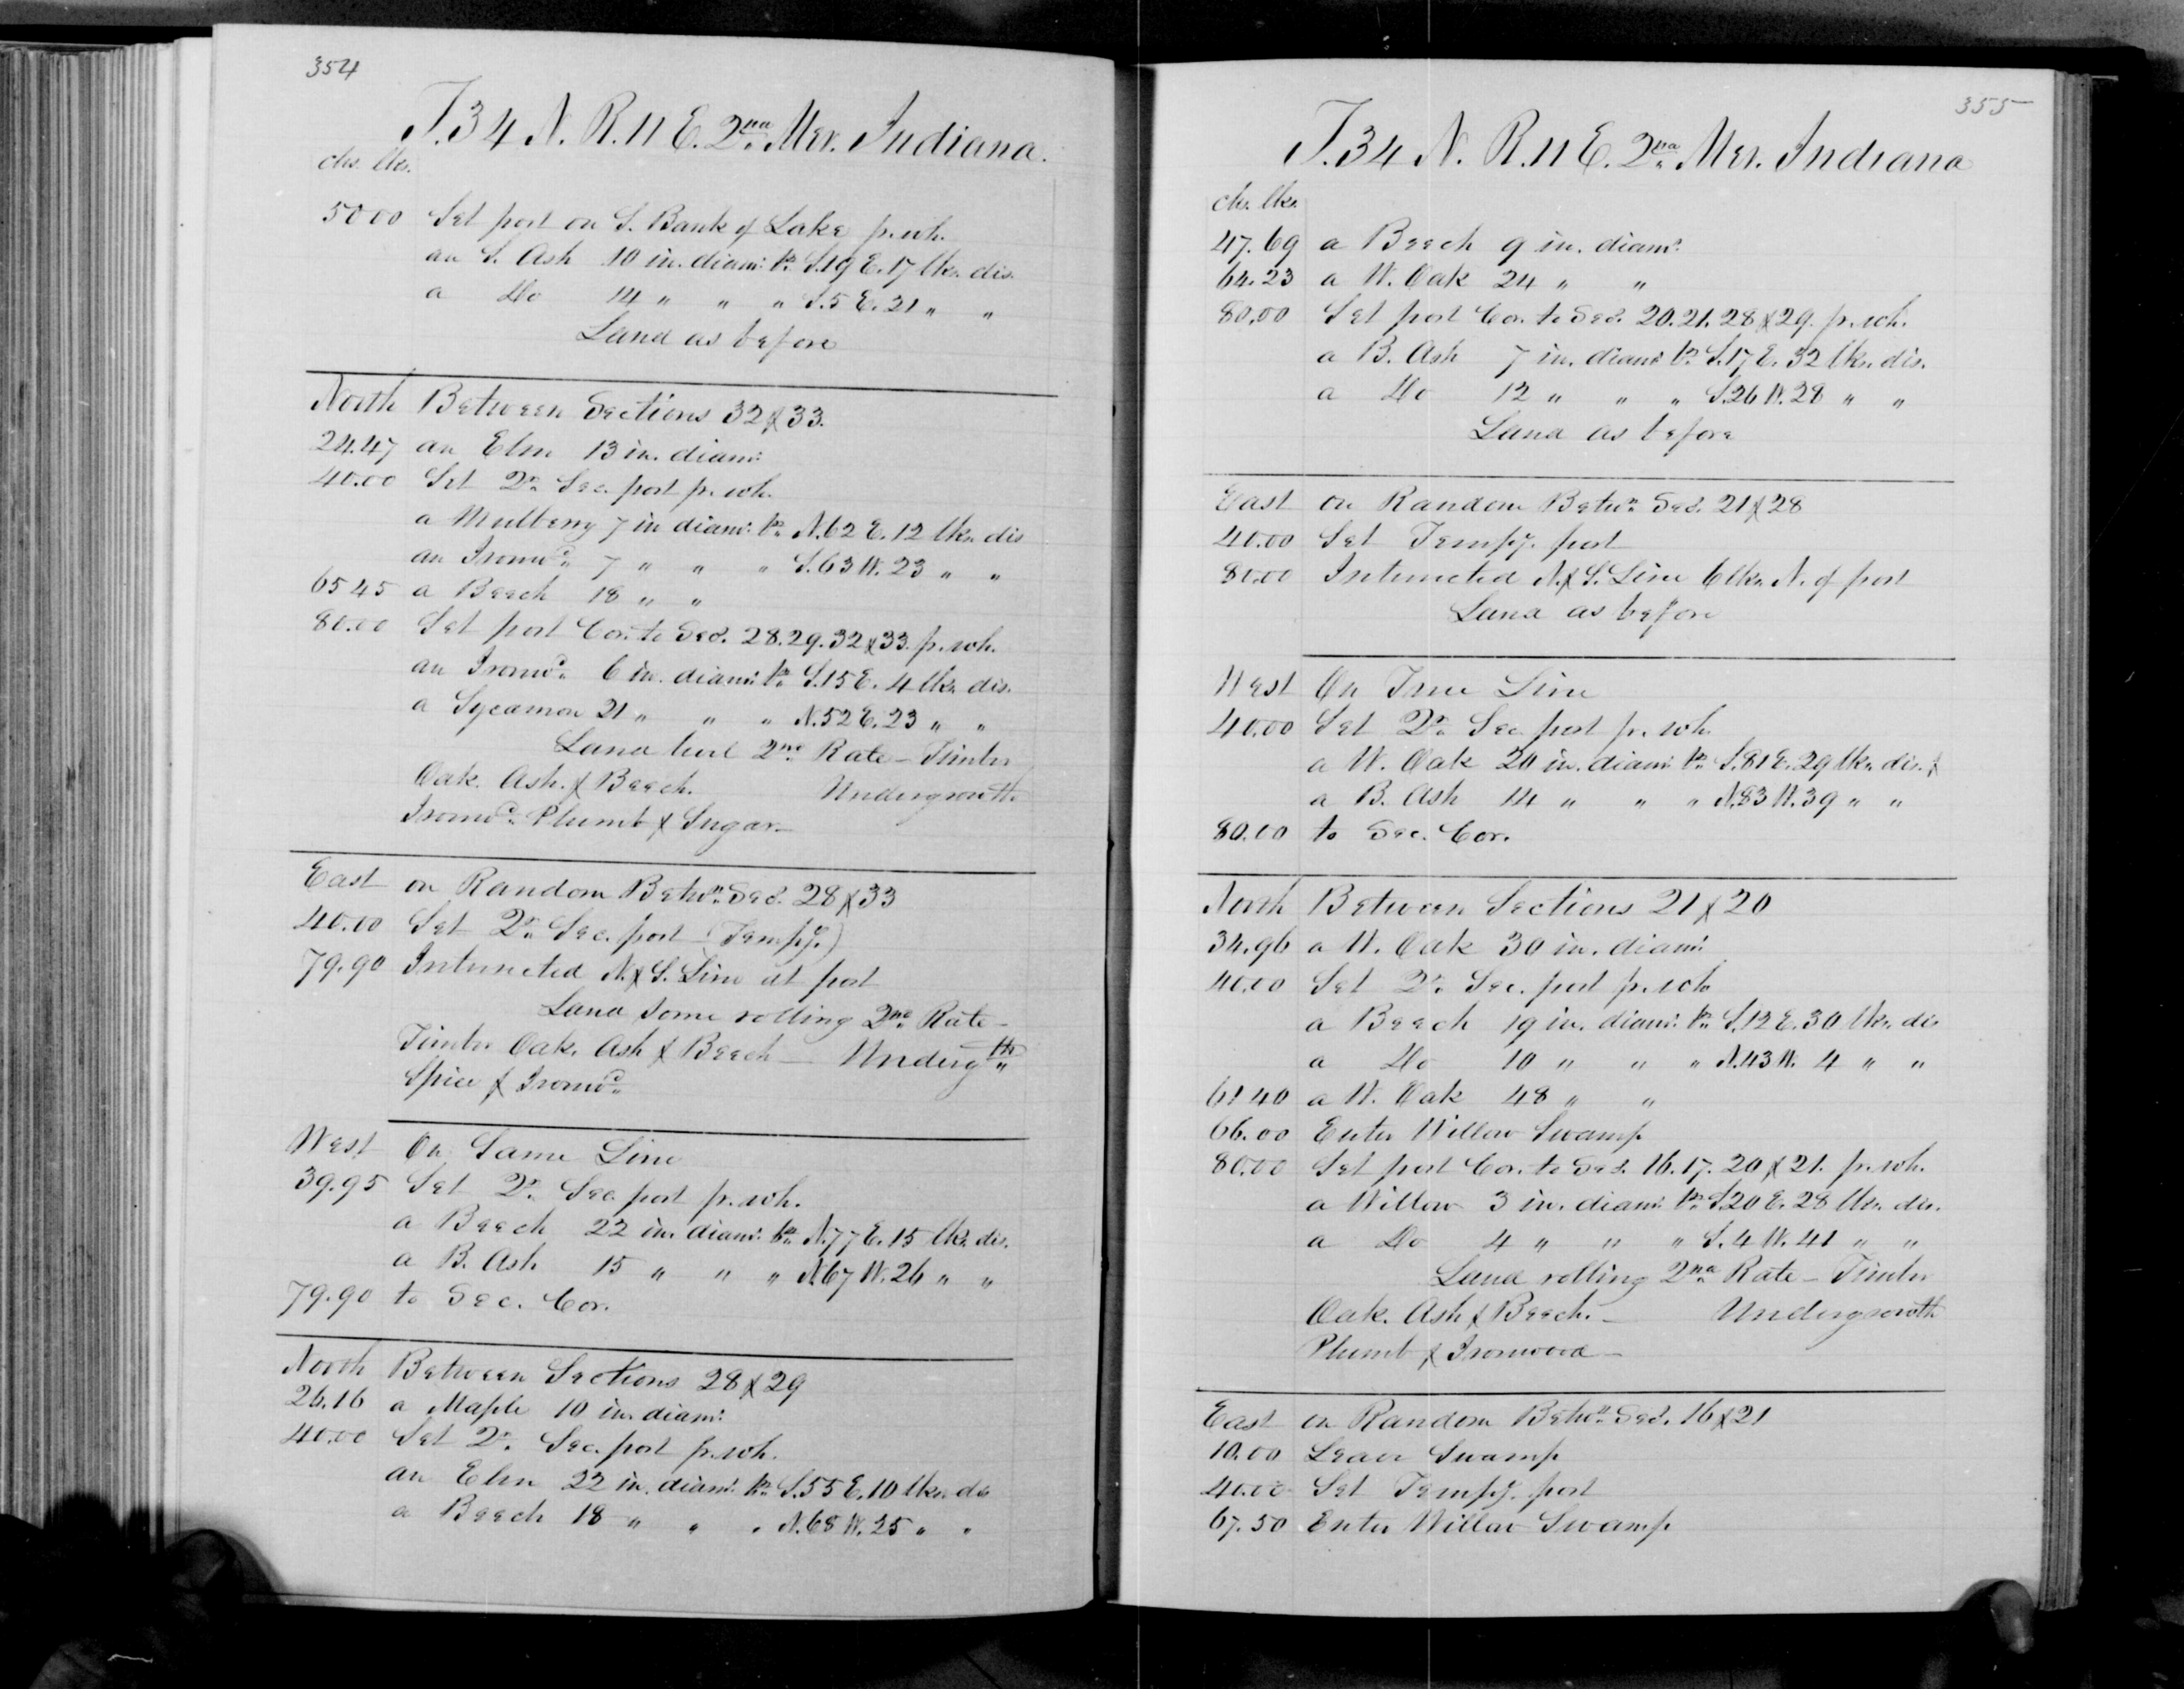 354
T. 34 N. R. 11 E. 2nd Mer. Indiana.
chs. lks.
50 00 Set post on S. Bank of Lake fr. wh.
an S. Ash 10 in. diam: brs S. 19 E. 17 lks. dis.
a Do 14 " " " S. 5 E. 21 " "
Land as before
North Between Sections 32 & 33.
24.47 an Elm 13 in. diam:
40.00 Set Qr. Sec. post fr. wh.
a Mulberry 7 in diam: brs N. 62 E. 12 lks. dis
an Ironwd. 7 " " " S. 63 W. 23 " "
65 45 a Beech 18 " "
80.00 Set post Cor. to Secs. 28. 29. 32 & 33. fr. wh.
an Ironwd. 6 in. diam: brs S. 15 E. 4 lks. dis.
a Sycamore 21 " " " N. 52 E. 23 " "
Land level 2nd Rate – Timber
Oak. Ash. & Beech. Undergrowth
Ironwd. Plumb & Sugar –
East on Random Betwn. Secs. 28 & 33
40.00 Set Qr. Sec. post (Tempy.)
79.90 Intersected N. & S. Line at post
Land some rolling 2nd Rate –
Timber Oak. Ash & Beech – Undergth
Spice & Ironwd.
West On Same Line
39.95 Set Qr. Sec. post fr. wh.
a Beech 22 in. diam: brs N. 77 E. 15 lks. dis.
a B. Ash 15 " " " N. 67 W. 26 " "
79.90 to Sec. Cor.
North Between Sections 28 & 29
26.16 a Maple 10 in. diam:
40.00 Set Qr. Sec. post fr. wh.
an Elm 22 in. diam: brs S. 55 E. 10 lks. dis
a Beech 18 " " " N. 68 W. 25 " "
355
T. 34 N. R. 11 E. 2nd Mer. Indiana
ch. lks.
47.69 a Beech 9 in. diam:
64.23 a W. Oak 24 " "
80.00 Set post Cor. to Secs. 20. 21. 28 & 29. fr. wh.
a B. Ash 7 in. diam: brs S. 17 E. 32 lks. dis.
a Do 12 " " " S. 26 W. 28 " "
Land as before
East on Random Betwn. Secs. 21 & 28
40.00 Set Tempy. post
80.00 Intersected N. & S. Line 6 lks. N. of post
Land as before
West On True Line
40.00 Set Qr. Sec. post fr. wh.
a W. Oak 20 in. diam: brs S. 81 E. 29 lks. dis. &
a B. Ash 14 " " " N. 83 W. 39 " "
80.00 to Sec. Cor.
North Between Sections 21 & 20
34.96 a W. Oak 30 in. diam:
40.00 Set Qr. Sec. post fr. wh
a Beech 19 in. diam: brs S. 12 E. 30 lks. dis
a Do 10 " " " N. 43 W. 4 " "
61 40 a W. Oak 48 " "
66.00 Enter Willow Swamp
80.00 Set post Cor. to Secs. 16. 17. 20 & 21. fr. wh.
a Willow 3 in. diam: brs S. 20 E. 28 lks. dis.
a Do 4 " " " S. 4 W. 41 " "
Land rolling 2nd Rate – Timber
Oak. Ash & Beech. – Undergrowth
Plumb & Ironwood –
East on Random Betwn. Secs. 16 & 21
10.00 Leave Swamp
40.00 Set Tempy. post
67.50 Enter Willow Swamp